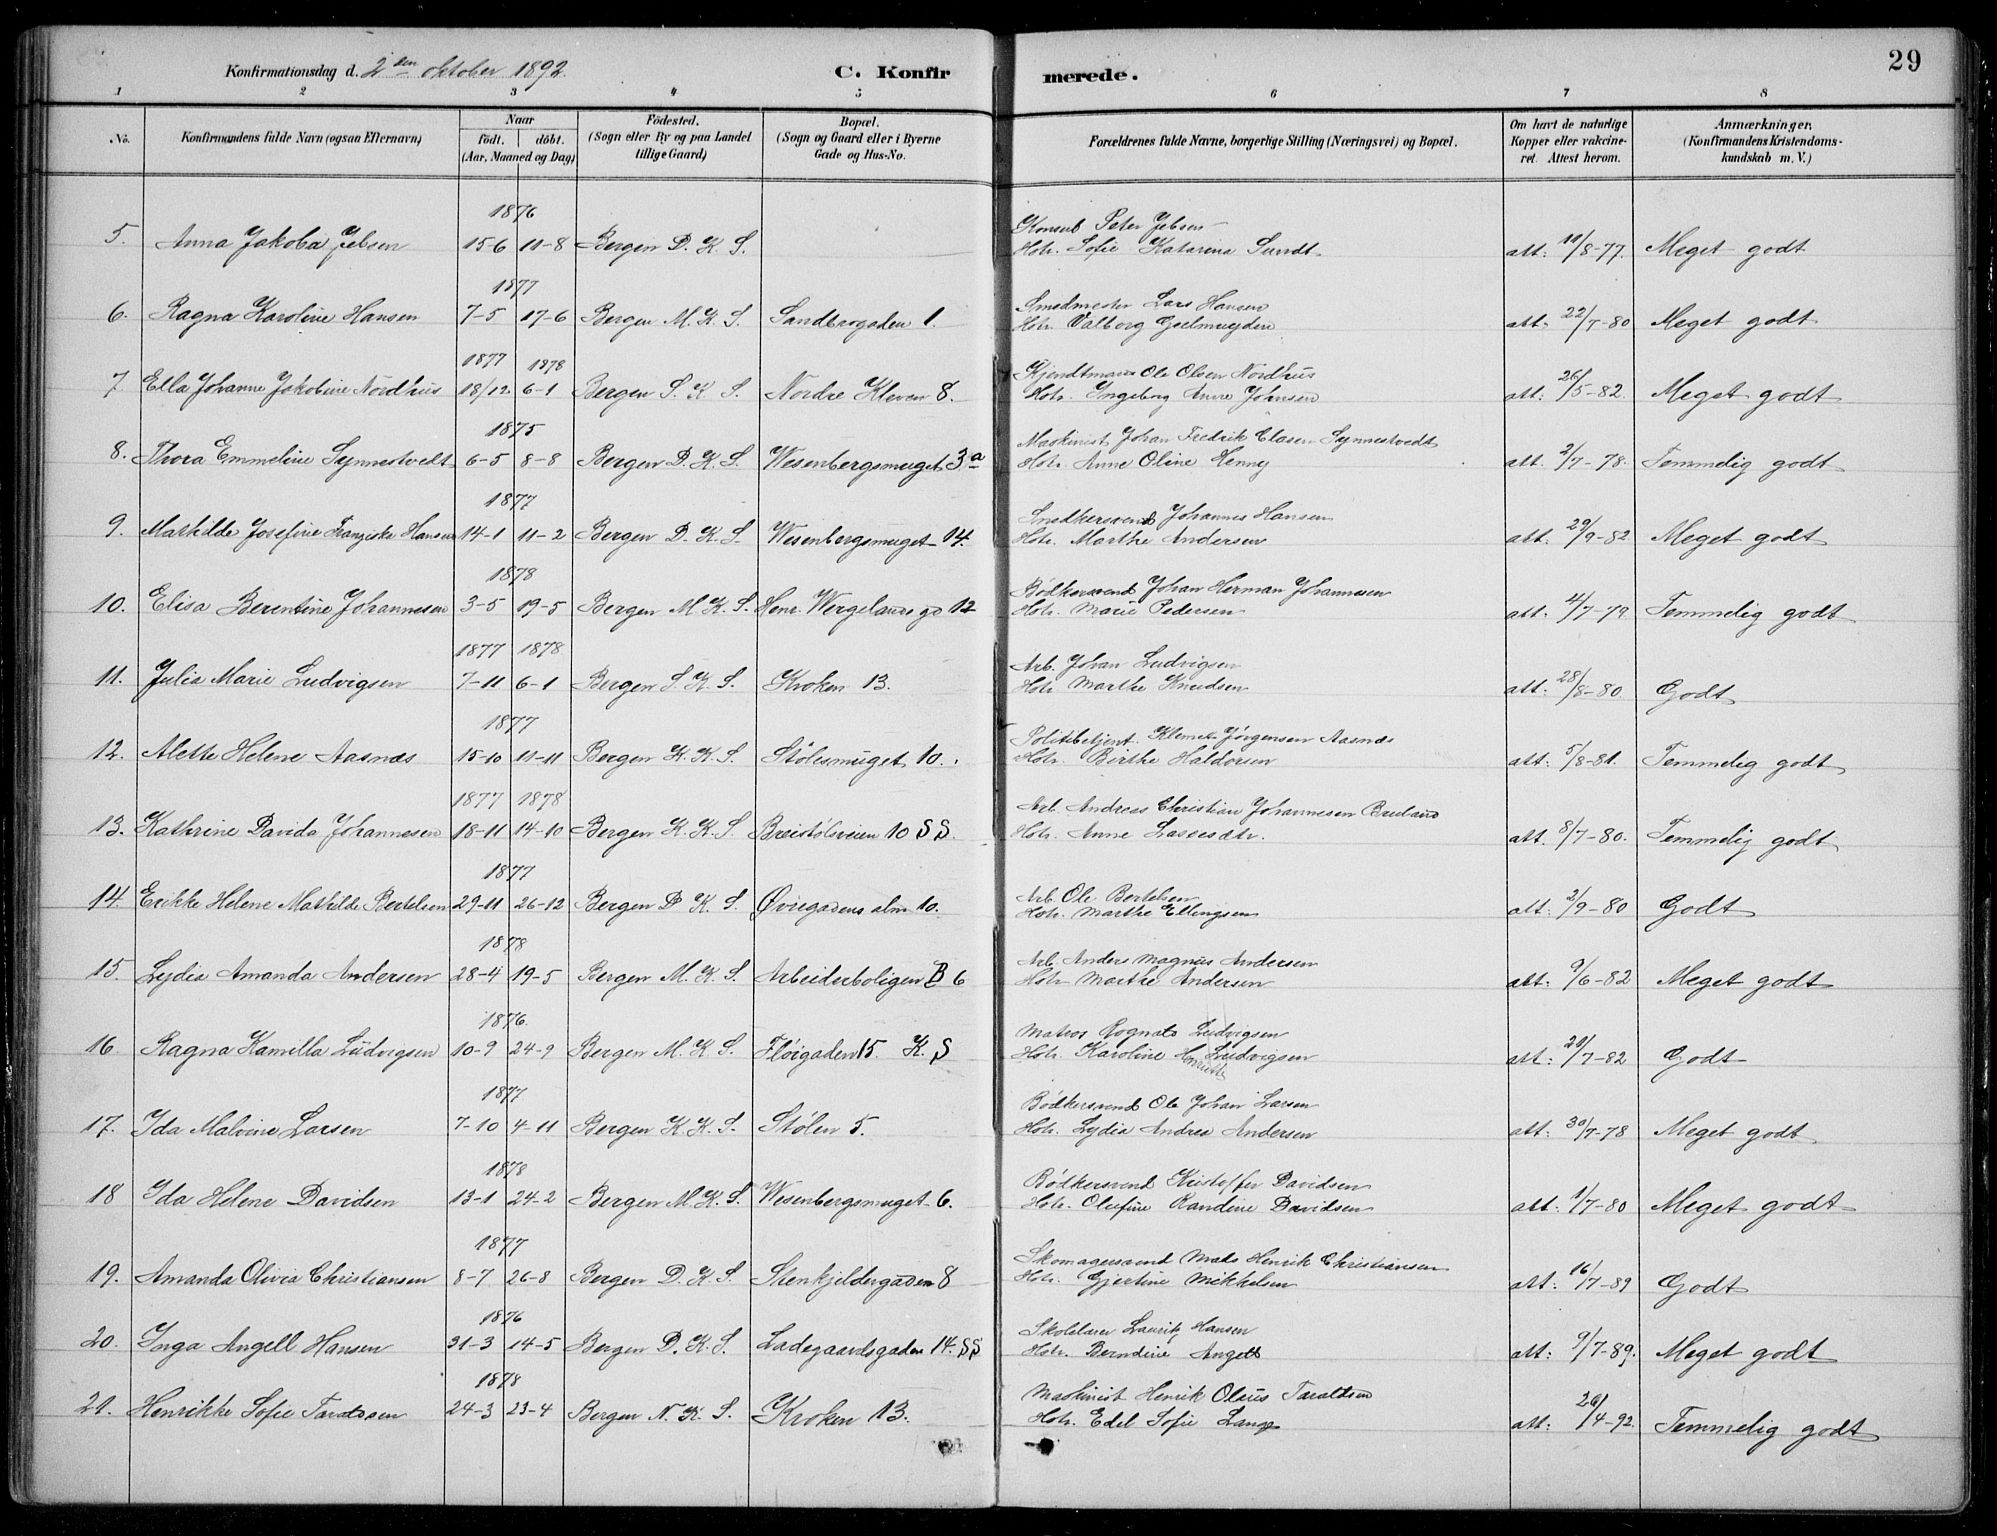 29
Konfirmationsdag d. 2den oktober 1892.
C. Konfirmerede.
1 2 3 4 5 6 7 8
No. Konfirmandens fulde Navn (ogsaa Efternavn) Naar födt. döbt. (Aar, Maaned og Dag) Födested. (Sogn eller By og paa Landet tillige Gaard) Bopæl. (Sogn og Gaard eller i Byerne Gade og Hus-No. Forældrenes fulde Navne, borgerlige Stilling (Næringsvei) og Bopæl. Om havt de naturlige Kopper eller vakcineret. Attest herom. Anmærkninger. (Konfirmandens Kristendomskundskab m. V.)
1876 Konsul Peter Jebsen
5. Anna Jakoba Jebsen 15-6 11-8 Bergen D. K. S. Hstr. Sofie Katarina Sundt att: 11/8-77. Meget godt
1877 Smedmester Lars Hansen
6. Ragna Karoline Hansen 7-5 17-6 Bergen M. K. S. Sandbrogaden 1. Hstr. Valborg Geelmuyden att: 22/7-80 Meget godt
1877 1878 Ole Olsen Nordhus
7. Ella Johanne Jakobine Nordhus 18/12 6-1 Bergen S. K. S. Nordre Kleven 8. Hstr. Ingeborg Anne Johnsen att: 26/5-82. Meget godt
1875 Maskinist Johan Fredrik Clasen Synnestvedt
8. Thora Emmeline Synnestvedt 6-5 8-8 Bergen D. K. S. Wesenbergsmuget 3a Hstr. Anne Oline Henny att. 2/7-78. Temmelig godt
1877 Snedkersvend Johannes Hansen
9. Mathilde Josefine Franziska Hansen 14-1 11-2 Bergen D. K. S. Wesenbergsmuget 14. Hstr. Marthe Andersen att: 29/9-82 Meget godt
1878 Bødkersvend Johan Herman Johannesen
10. Elisa Berentine Johannesen 3-5 19-5 Bergen M K. S. Henr. Wergelands gd 12 Hstr. Marie Pedersen att: 4/7-79. Temmelig godt
1877 1878 Arb. Johan Ludvigsen
11. Julia Marie Ludvigsen 7-11 6-1 Bergen S. K. S. Kroken 13. Hstr. Marthe Knudsen att: 28/8-80. Godt
1877 Politibetjent Klemet Jørgensen Aasnæs
12. Alette Helene Aasnæs 15-10 11-11 Bergen K. K. S. Stølesmuget 10. Hstr. Birthe Haldorsen att: 5/8-81. Temmelig godt
1877 1878 Arb. Andreas Christian Johannesen
13. Kathrine Davida Johannesen 18-11 14-10 Bergen K. K. S. Breistølsveien 10 S S. Hstr. Anne Lassesdtr. att. 8/7-80. Temmelig godt
1877 Arb. Ole Bertelsen
14. Erikke Helene Mathilde Bertelsen 29-11 26-12 Bergen D K. S. Øvregadens alm 10. Hstr. Marthe Ellingsen att: 2/9-80 Godt
1878 Arb. Anders Magnus Andersen
15. Lydia Amanda Andersen 28-4 19-5 Bergen M. K. S. Arbeiderboligen B 6 Hstr. Marthe Andersen att: 9/6-82 Meget godt
1876. Matros Rognald Ludvigsen
16. Ragna Kamilla Ludvigsen 10-9 24-9 Bergen M. K. S. Fløigaden 15. K. S Hstr. Karoline Henriette Ludvigsen att: 20/7-82 Godt
1877 Bødkersvend Ole Johan Larsen
17. Ida Malvine Larsen 7-10 4-11 Bergen K. K. S. Stølen 5. Hstr. Lydia Andrea Andersen att: 30/7-78 Meget godt
1878 Bødkersvend Kristoffer Davidsen
18 Ida Helene Davidsen 13-1 24-2 Bergen M. K. S. Wesenbergsmuget 6. Hstr. Olufine Randine Davidsen att: 1/7-80 Meget godt
1877 Skomagersvend Mads Henrik Christiansen
19. Amanda Olivia Christiansen 8-7 26-8 Bergen D. K. S. Stenkjeldergaden 8 Hstr. Gjertine Mikkelsen att: 16/7-89 Godt
1876 Skolelærer Lauritz Hansen
20. Inga Angell Hansen 31-3 14-5 Bergen D. K. S. Ladegaardsgaden 14. SS Hstr. Berndine Angell att: 9/7-89. Meget godt
1878 Maskinist Henrik Olaus Taraldsen
21. Henrikke Sofie Taraldsen 24-3 23-4 Bergen N. K. S. Kroken 13. Hstr. Edel Sofie Lange att: 26/4-92. Temmelig godt